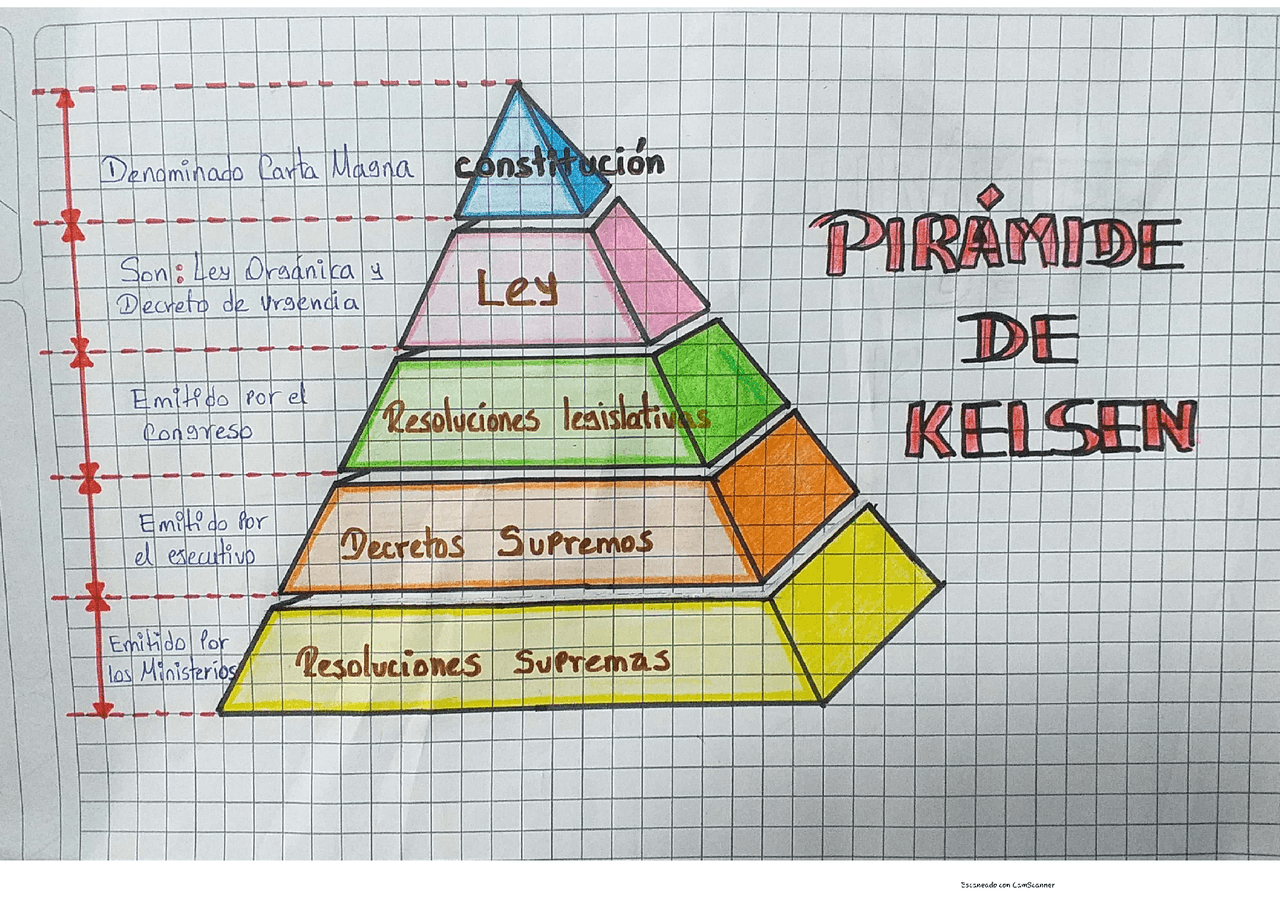 Denominado Carta Magna
constitución
Son: Ley Orgánica y
Decreto de urgencia
Ley
Emitido por el
Congreso
Resoluciones legislativas
Emitido Por
el esecutivo
Decretos Supremos
Emitido Por
los Ministerios
Resoluciones Supremas
PIRÁMIDE
DE
KELSEN
Escaneado con CamScanner